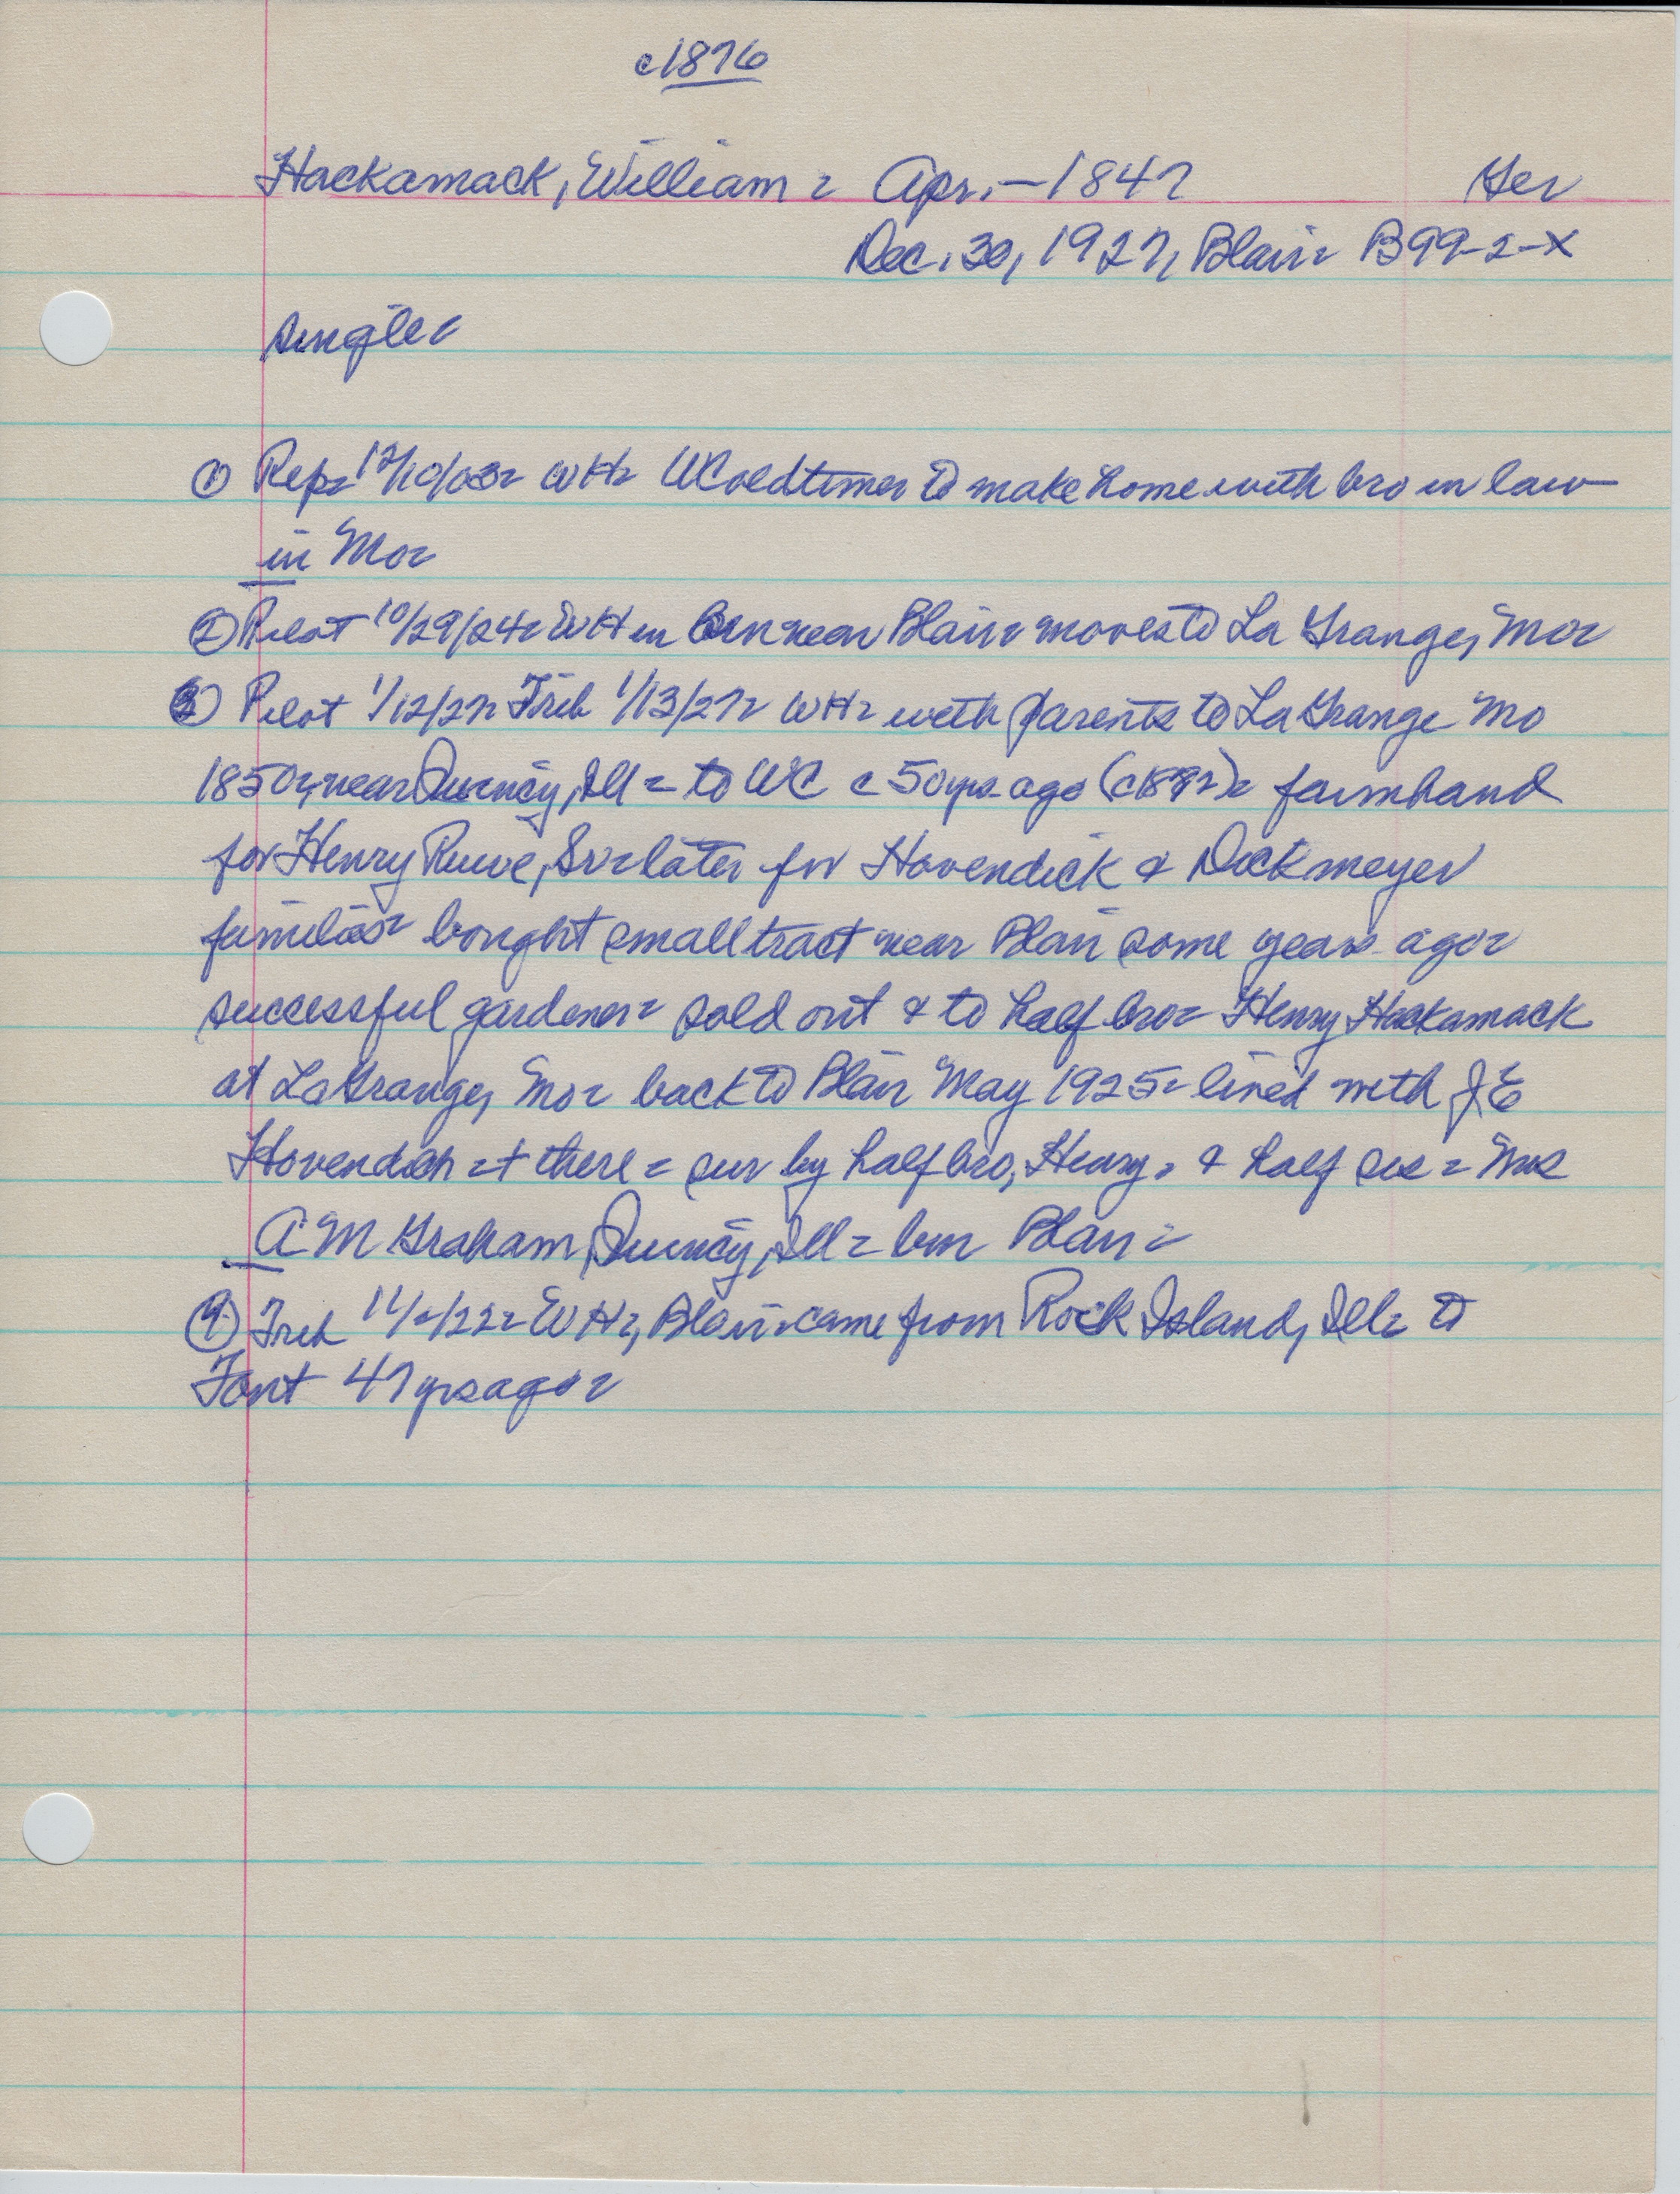 c1876
Hackamack, William = Apr. – 1847 Ger
Dec. 30, 1927, Blair = B99-2-X
single =
① Rep = 12/10/03 = WH = WC oldtimer to make home with bro in law
in Mo =
② Pilot 10/29/24 = WH in near Blair = moves to La Grange, Mo =
③ Pilot 1/12/27 = Trib 1/13/27 = WH = with parents to La Grange Mo
1850 =, near Quincy, Ill = to WC c 50 yrs ago = farmhand
for Henry Ruwe, Sr = later for Hovendick & Dickmeyer
families = bought small tract near Blair some years ago =
successful gardener = sold out & to half bro = Henry Hackamack
at La Grange, Mo = back to Blair May 1925 = lived with J E
Hovendick = + there = sur by half bro, Henry, & half sis = Mrs
A M Graham, Quincy, Ill = bur Blair =
④ Trib = WH =, Blair = came from Rock Island, Ill = to
Font 47 yrs ago =